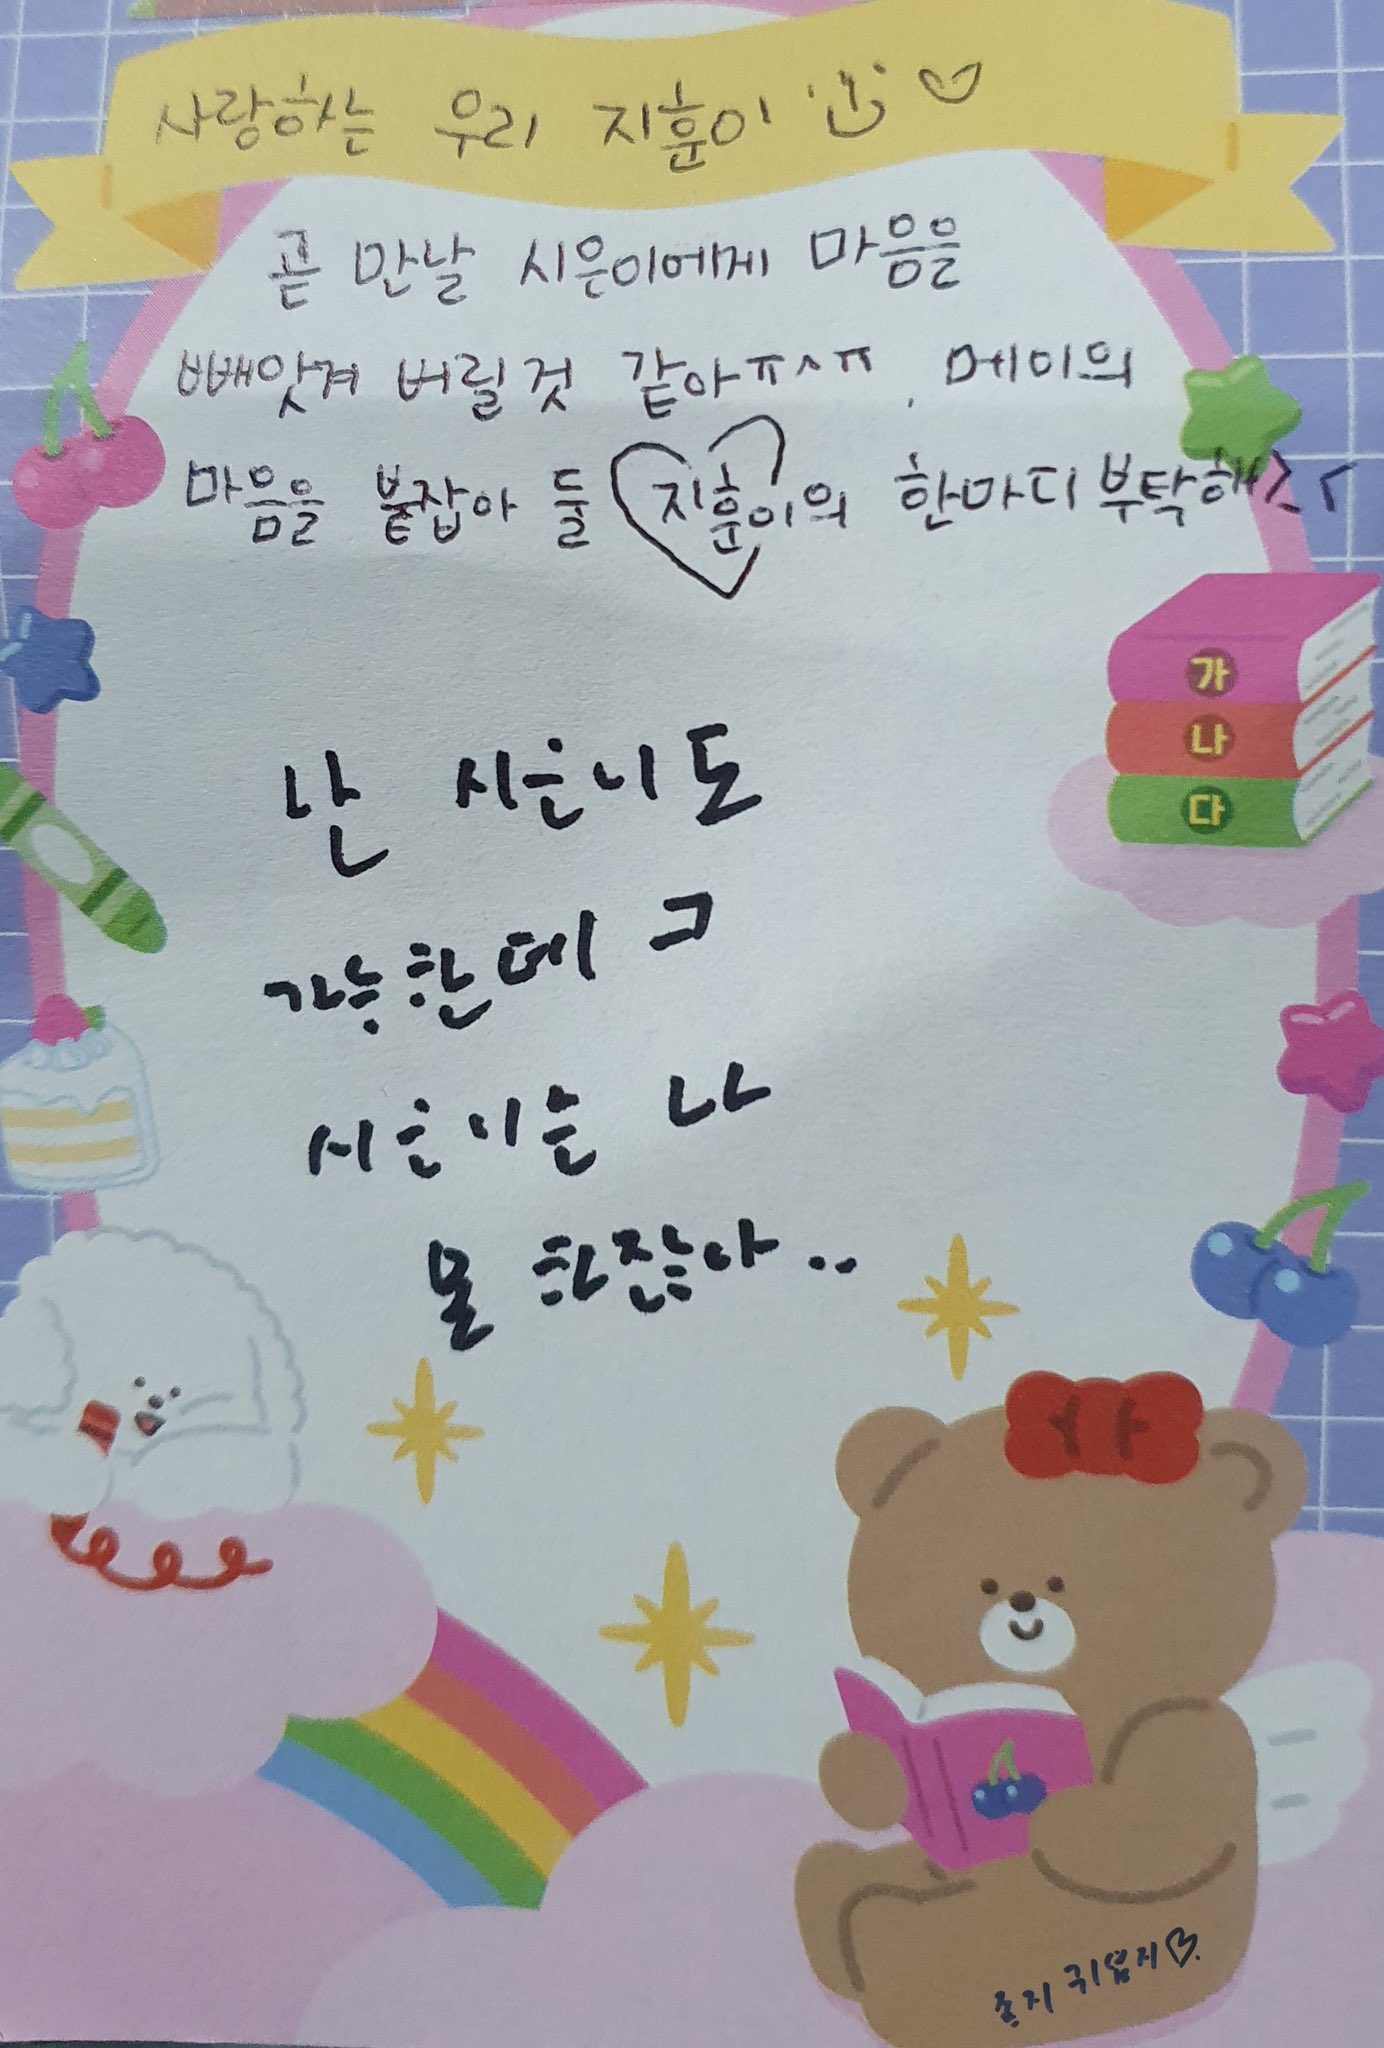 사랑하는 우리 지훈이
곧 만날 시은이에게 마음을
빼앗겨 버릴것 같아ㅠㅅㅠ. 메이의
마음을 붙잡아 둘 지훈이의 한마디 부탁해><
가
나
다
난 시은이도
가능한데 그
시은이는 나
못 하잖아..
귀엽지♡